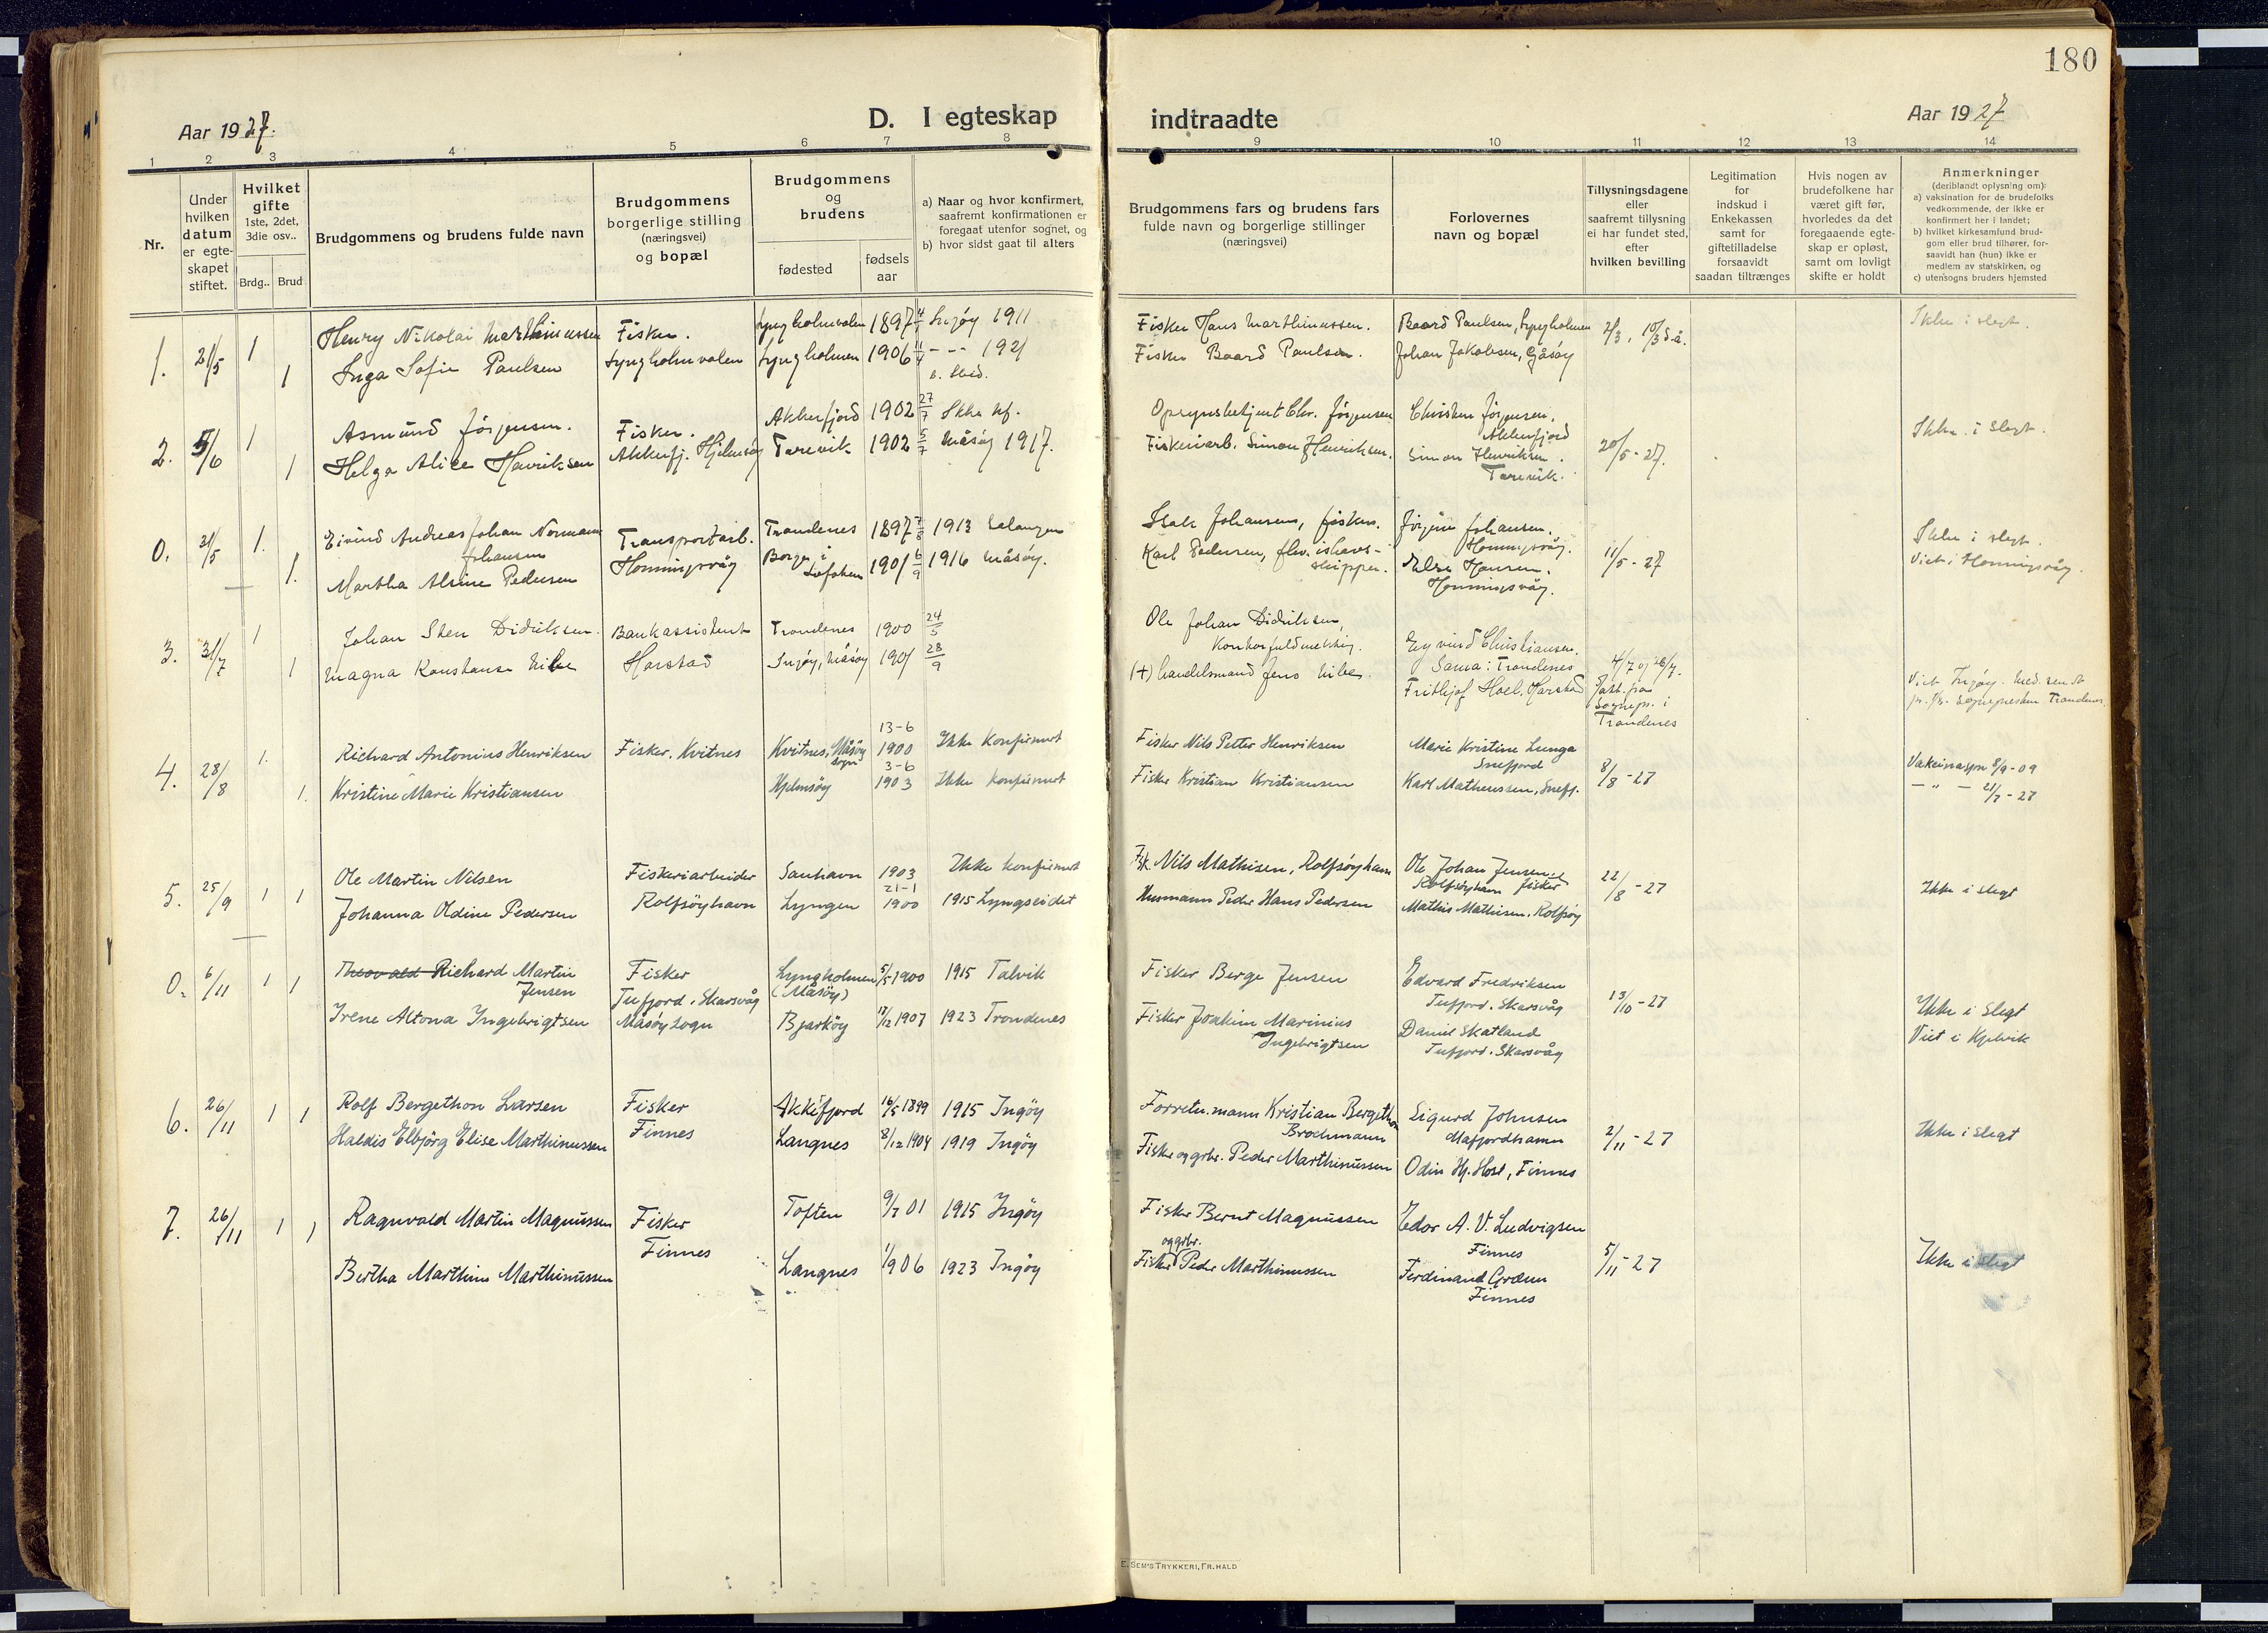 180
Aar 1927.
D. I egteskap
indtraadte
Aar 1927
1 2 3 4 5 6 7 8 9 10 11 12 13 14
Nr.
Under hvilken datum er egteskapet stiftet.
Hvilket gifte
1ste, 2det, 3die osv..
Brdg.. Brud
Brudgommens og brudens fulde navn
Brudgommens borgerlige stilling (næringsvei) og bopæl
Brudgommens og brudens
fødested
fødsels aar
a) Naar og hvor konfirmert, saafremt konfirmationen er foregaat utenfor sognet, og
b) hvor sidst gaat til alters
Brudgommens fars og brudens fars fulde navn og borgerlige stillinger (næringsvei)
Forlovernes navn og bopæl
Tillysningsdagene eller saafremt tillysning ei har fundet sted, efter hvilken bevilling
Legitimation for indskud i Enkekassen samt for giftetilladelse forsaavidt saadan tiltrænges
Hvis nogen av brudefolkene har været gift før, hvorledes da det foregaaende egteskap er opløst, samt om lovligt skifte er holdt
Anmerkninger
(deriblandt oplysning om):
a) vaksination for de brudefolks vedkommende, der ikke er konfirmert her i landet;
b) hvilket kirkesamfund brudgom eller brud tilhører, forsaavidt han (hun) ikke er medlem av statskirken, og
c) utensogns bruders hjemsted
1. 21/5 1 Henry Nikolai Marthinussen Fisker. Lyngholmvalen 1897 Ingøy 1911 Fisker Hans Marthinussen. Baard Paulsen, Lyngholmen Ikke i slegt.
1 Inga Sofie Paulsen Lyngholmvalen Lyngholmen 1906 11/4 - - - 1921 Fisker Baard Paulsen. Johan Jakobsen, Gåsøy
2. 5/6 1 Asmund Jørgensen. Fisker. Akkerfjord 1902 27/7 Ikke kf. Opsynsbetjent Chr. Jørgensen Christen Jørgensen, Akkerfjord 20/5-27. Ikke i slegt.
1 Helga Alice Henriksen Akkerfj. Hjelmsøy Tarevik 1902 5/7 Måsøy 1917. Fiskeriarb. Simon Henriksen. Simon Henriksen. Tarevik.
0. 21/5 1. Eivind Andreas Johan Normann Johansen Transportarb. Trondenes 1897 1913 Salangen Isak Johansen, fisker. Jørgine Johansen. Honningsvåg. 11/5-27 Ikke i slegt.
1. Martha Alsine Pedersen Honningsvåg Borge i Lofoten 1901 6/9 1916 Måsøy. Karl Pedersen, flv. ishavsskipper. Hansen. Honningsvåg. Viet i Honningsvåg.
3. 31/7 1 Johan Sten Didriksen. Bankassistent Trondenes 1900 24/5 Ole Johan Didriksen, Kontorfuldmektig. Eyvind Christiansen. Sama i Trondenes 4/7 og 26/7.
1 Magna Konstanse Harstad Ingøy, Måsøy 1901 28/9 (+) handelsmand Jens Frithjof Hoel. Harstad fra Sognepr. i Trondenes Viet Ingøy.
4. 28/8 1. Richard Antonius Henriksen Fisker. Kvitnes Kvitnes, Måsøy sogn 13-6 1900 Ikke konfirmert Fisker Nils Petter Henriksen Marie Kristine Lunga Snefjord 8/8-27 Vakcinasjon 8/9-09
1. Kristine Marie Kristiansen Hjelmsøy 3-6 1903 Ikke konfirmert Fisker Kristian Kristiansen Karl Matheussen, Snefj. - " - 21/7-27
5. 25/9 1 1 Ole Martin Nilsen Fiskeriarbeider Sanhavn 1903 Ikke konfirmert Fisk. Nils Mathisen, Rolfsøyhavn Ole Johan Jensen, Rolfsøyhavn fisker 22/8-27 Ikke i slegt
Johanna Oldine Pedersen Rolfsøyhavn Lyngen 21-1 1900 1915 Lyngseidet Husmann Peder Hans Pedersen Mathis Mathisen. Rolfsøy
0. 6/11 1 1 Theovald Richard Martin Jensen Fisker Lyngholmen (Måsøy) 5/5 1900 1915 Talvik Fisker Berge Jensen Edvard Fredriksen Tufjord. Skarsvåg 13/10-27 Ikke i slegt
Irene Altona Ingebrigtsen Tufjord. Skarsvåg Måsøy Sogn Bjarkøy 17/12 1907 1923 Trondenes Fisker Joakim Marinius Ingebrigtsen Daniel Skatland Tufjord. Skarsvåg Viet i Kjelvik
6. 26/11 1 1 Rolf Bergethon Larsen Fisker Akkefjord 16/5 1899 1915 Ingøy Forretn.mann Kristian Bergethon Brochmann Sigurd Johnsen Mafjordhamn 2/11-27 Ikke i slegt
Haldis Elbjørg Elise Marthinussen Finnes Langnes 8/12 1904 1919 Ingøy Fisker og grbr. Peder Marthinussen Odin Hj. Host, Finnes
7. 26/11 1 1 Ragnvald Martin Magnussen Fisker Toften 9/7 01 1915 Ingøy Fisker Bernt Magnussen Edor A. V. Ludvigsen Finnes 5/11-27 Ikke i slegt
Bertha Marthine Marthinussen Finnes Langnes 1/9 06 1923 Ingøy Fisker og grbr. Peder Marthinussen Ferdinand Finnes
E. SEM'S TRYKKERI, FR. HALD